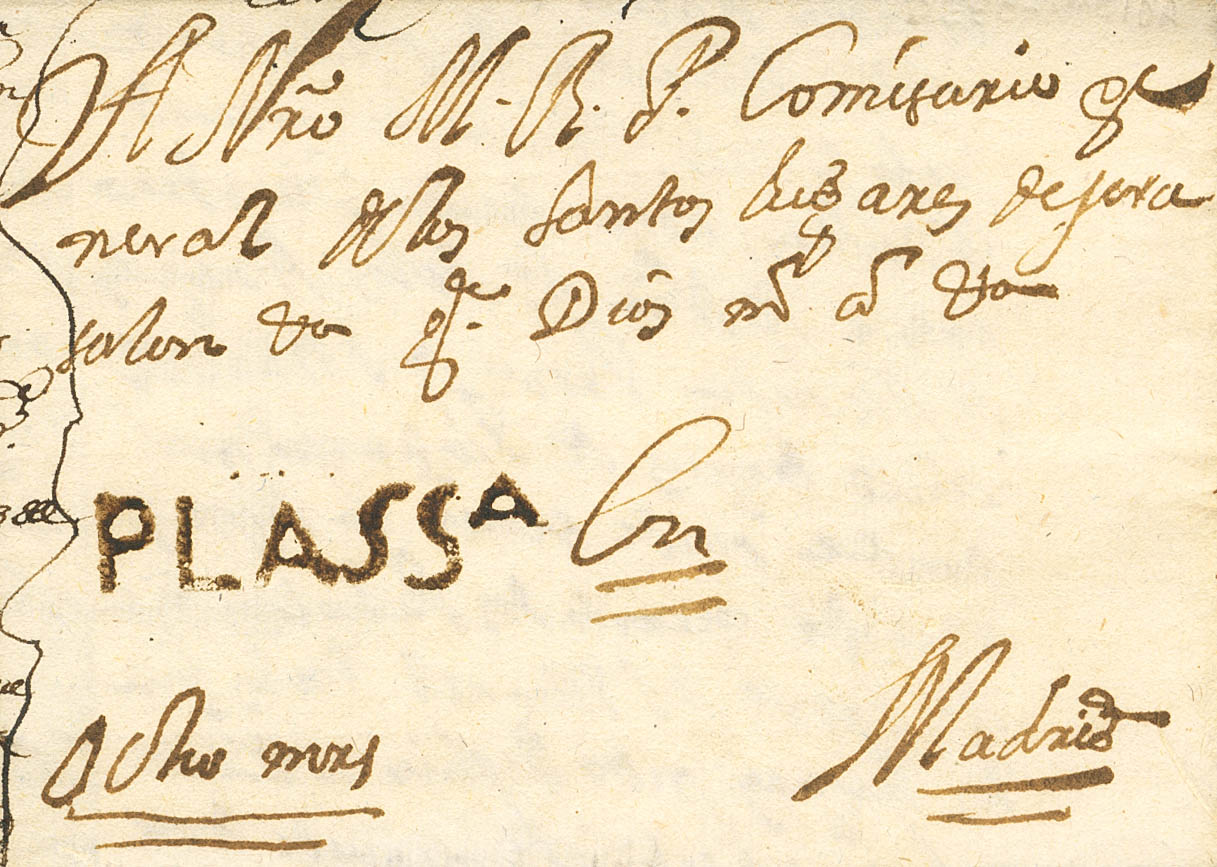 A Nrõ M. R. P. Comisario ge
neral de los santos lugares de jeru
salen &a ge. Dios ms as &a
PLASSA En
Ocho mrs
Madrid